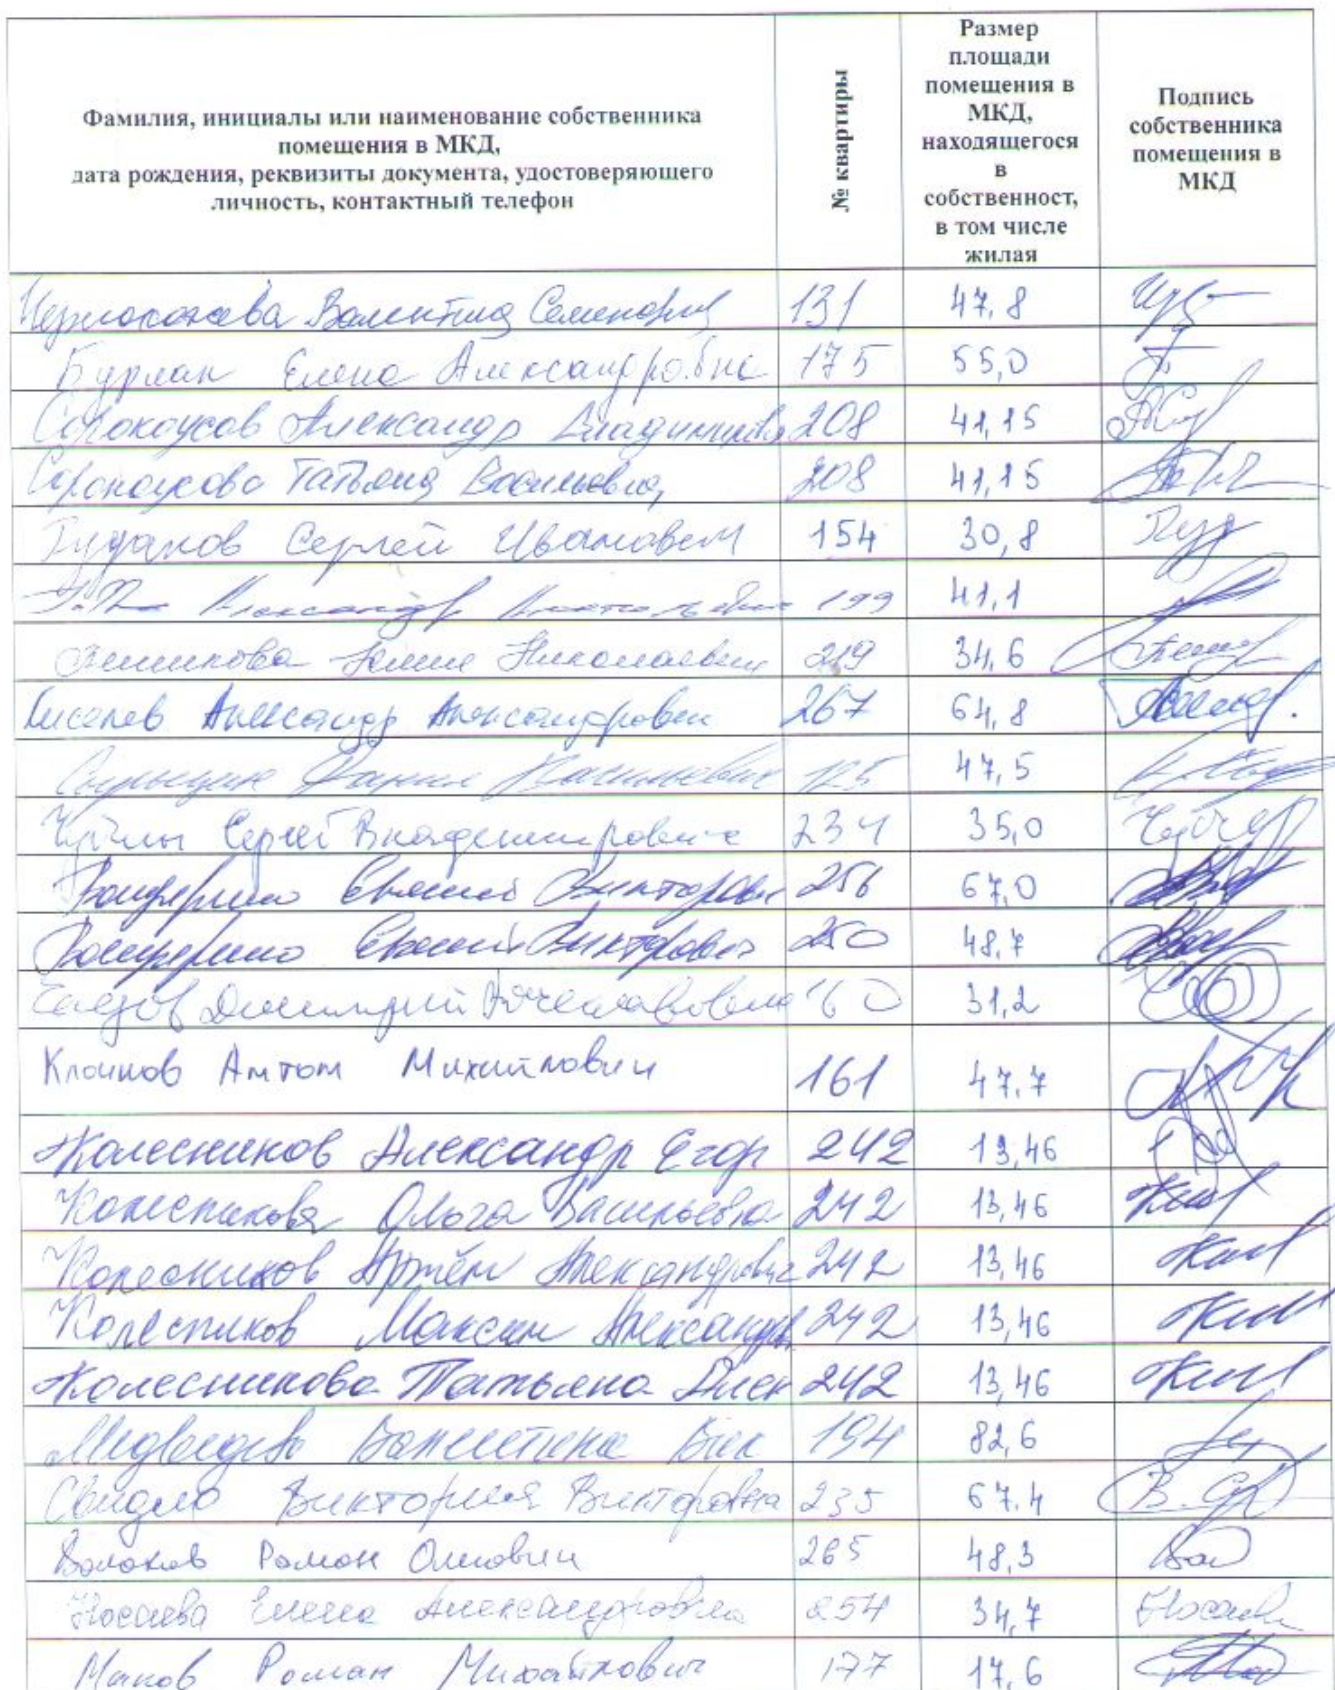 Фамилия, инициалы или наименование собственника
помещения в МКД,
дата рождения, реквизиты документа, удостоверяющего
личность, контактный телефон
№ квартиры
Размер
площади
помещения в
МКД,
находящегося
в
собственност,
в том числе
жилая
Подпись
собственника
помещения в
МКД
Валентина Семеновна 131 47,8
Бурлак Елена Александровна 175 55,0
Сорокоусов Александр Владимирович 208 41,15
Сорокоусова Татьяна Васильевна 208 41,15
Гудаков Сергей Иванович 154 30,8
Александр Анатольевич 199 41,1
Николаевич 219 34,6
Киселев Александр Александрович 267 64,8
125 47,5
Сергей Владимирович 234 35,0
Бондаренко Евгений Викторович 256 67,0
Бондаренко Евгений Викторович 250 48,7
Вячеславович 160 31,2
Антон Михайлович 161 47,7
Колесников Александр Егор 242 13,46
Колесникова Ольга Васильевна 242 13,46
Колесников Артём Александрович 242 13,46
Колесников Максим Александр 242 13,46
Колесникова Татьяна Алек 242 13,46
Медведева Валентина 194 82,6
Виктория Викторовна 235 67,4
Роман 265 48,3
Носаева Елена Александровна 254 34,7 Носаева
Роман Михайлович 177 17,6